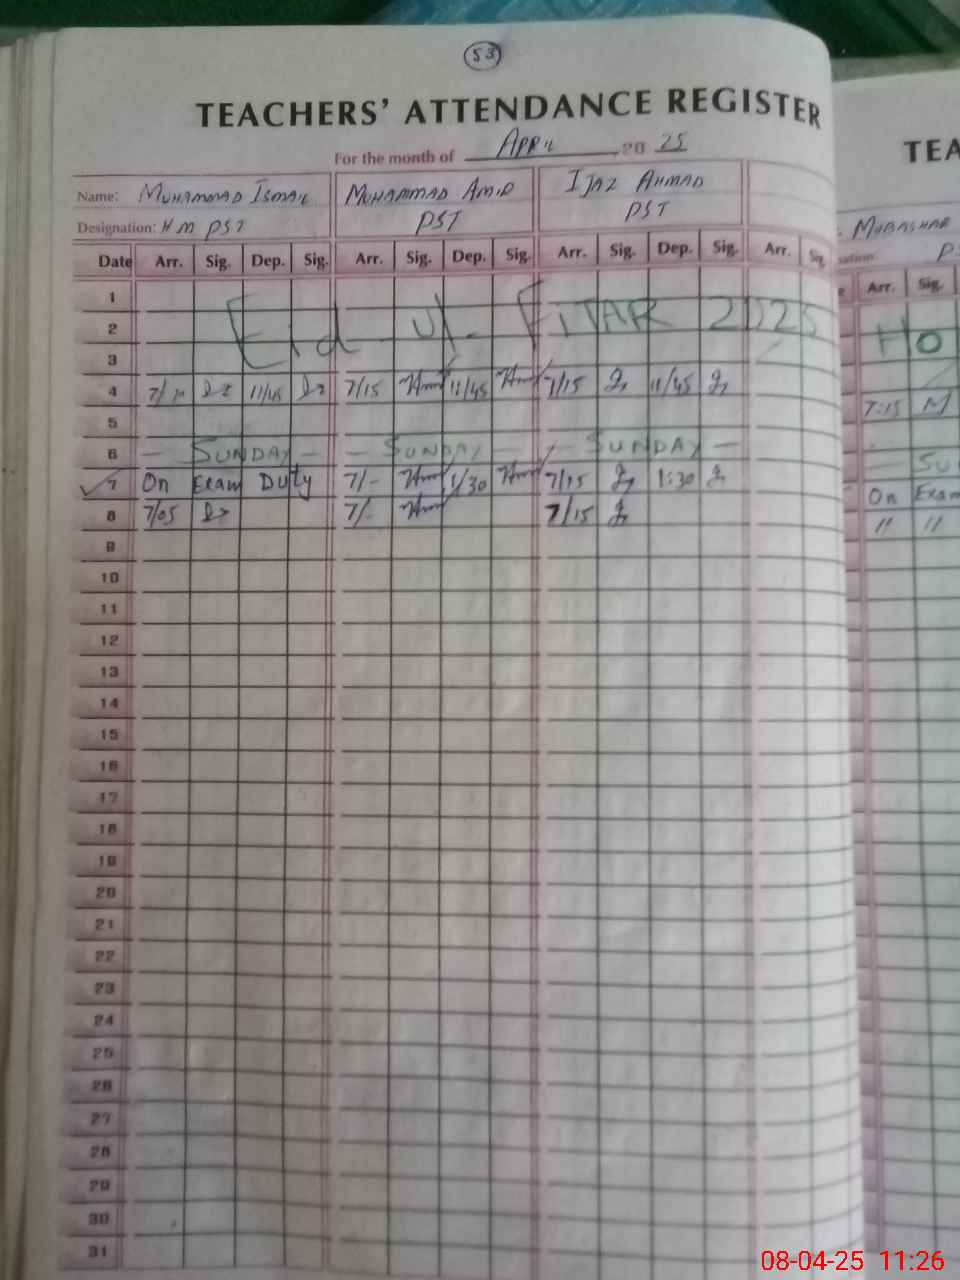 53
TEACHERS' ATTENDANCE REGISTER
For the month of APRIL 20 25
Name: MUHAMMAD ISMAIL MUHAMMAD AMIR IJAZ AHMAD
Designation: H M PST PST PST
Date Arr. Sig. Dep. Sig. Arr. Sig. Dep. Sig. Arr. Sig. Dep. Sig. Arr. Sig.
1
2 Eid Ul FITAR 2025
3
4 11/45 7/15 11/45 7/15 11/45
5
6 — SUNDAY — — SUNDAY — — SUNDAY —
7 On Exam Duty 7/- 1/30 7/15 1:30
8 7/05 7/- 7/15
9
10
11
12
13
14
15
16
17
18
19
20
21
22
23
24
25
26
27
28
29
30
31
TEA
MUBASHAR
Arr. Sig.
HO
7:15 M
SU
On Exam
" "
08-04-25 11:26